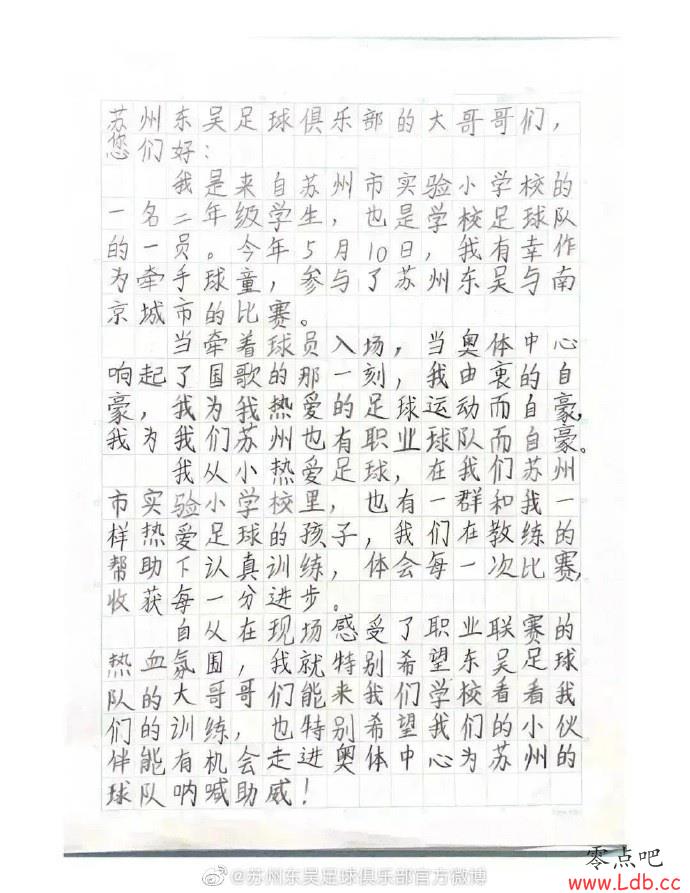 苏州东吴足球俱乐部的大哥哥们，
您们好：
我是来自苏州市实验小学校的
一名二年级学生，也是学校足球队
的一员。今年5月10日，我有幸作
为牵手球童，参与了苏州东吴与南
京城市的比赛。
当牵着球员入场，当奥体中心
响起了国歌的那一刻，我由衷的自
豪，我为我热爱的足球运动而自豪，
我为我们苏州也有职业球队而自豪。
我从小热爱足球，在我们苏州
市实验小学校里，也有一群和我一
样热爱足球的孩子，我们在教练的
帮助下认真训练，体会每一次比赛，
收获每一分进步。
自从在现场感受了职业联赛的
热血氛围，我就特别希望东吴足球
队的大哥哥们能来我们学校看看我
们的训练，也特别希望我们的小伙
伴能有机会走进奥体中心为苏州的
球队呐喊助威！
@苏州东吴足球俱乐部官方微博
零点吧
www.Ldb.cc